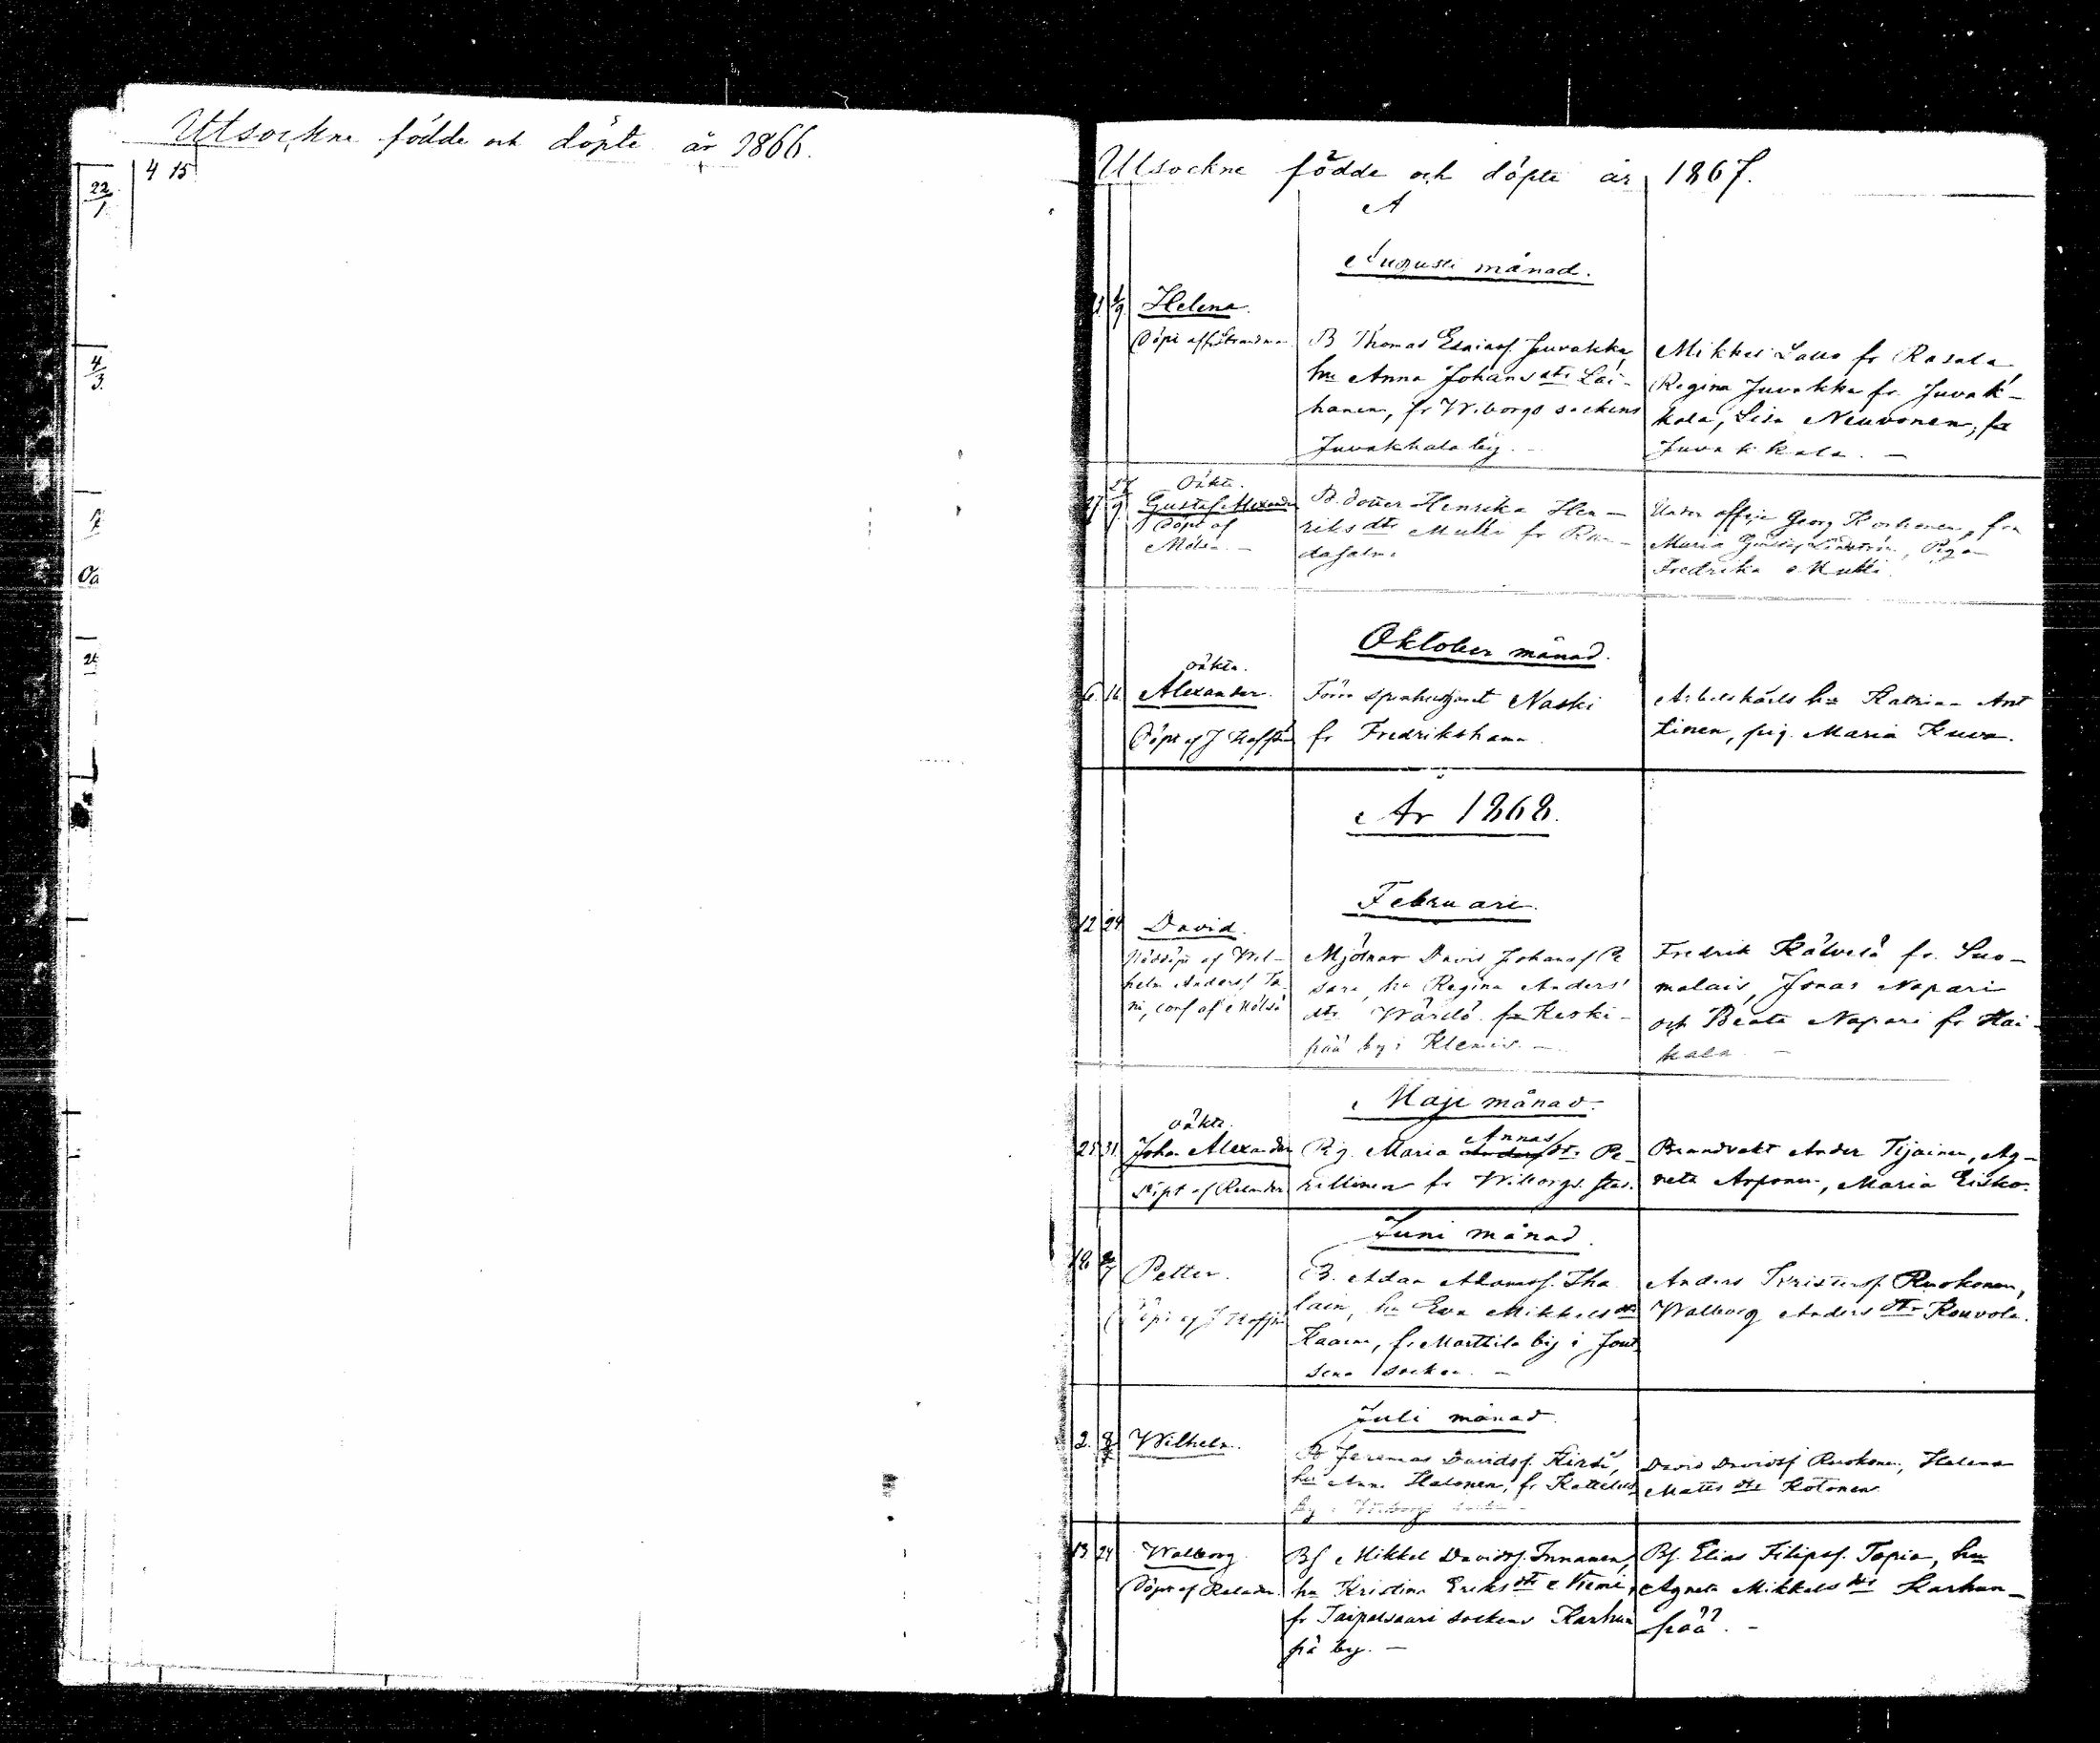 Utsockne födde och döpte år 1866.
4 15
22/1
4/3
Utsockne födde och döpte år 1867.
A
Augusti månad.
Helena.
Döpt af Strandman
B Thomas Esaiasf. Juvakka,
hu Anna Johansdtr Lai-
hanen, fr Wiborgs sockens
Juvakkala by. -
Mikkel Lallo fr Rasala
Regina Juvakka fr. Juvak-
kala, Lisa Neuvonen, fr
Juvakkala. -
27 27/9 Oäkta.
Gustaf Alexander
Döpt af
Mölsä. -
B. dotter Henrika Hen-
riks dtr Mutki fr Ran-
dasalmi
Under offic. Georg Korhonen, fru
Maria Lindström, Pigan
Fredrika Mutki.
Oktober månad.
oäkta.
6. 16. Alexander.
Döpt af J Hoffrén
Förra spinhushjonet Naski
fr Fredrikshamn.
Arbetskarls hu Katrina Ant
tinen, pig. Maria Kuva.
År 1868.
Februari.
12 24 David.
Nöddöpt af Wil-
helm Andersf. Ta-
ni, conf af Mölsä
Mjölnar David Johansf Pe
sare, hu Regina Anders
dtr Wärilä fr Keski-
pää by i Klemis. -
Fredrik Kälvelä fr. Suo-
malais, Jonas Napari
och Beata Napari fr Hai-
kala. -
Maji månad.
oäkta.
25 31. Johan Alexander
Döpt af Relander
Pig. Maria Anders Annas dtr Pe-
rillinen fr Wiborgs stad.
Brandvakt Ander Tijainen, Ag-
neta Arponen, Maria Eisko.
Juni månad.
Petter.
Döpt af J Hoffrén
B. Adam Adamsf. Iha
lain, hu Eva Mikkelsdtr
Kaarna, fr Marttila by i Jout
seno socken. -
Anders Kristersf. Ruokonen,
Walborg Anders dtr Kouvola.
Juli månad.
2. Wilhelm.
B Jeremias Davidsf. Hirsi,
hu Anna Halonen, fr Kattelus
by i Wiborgs socken -
David Davidsf Ruokonen, Helena
Matts dtr Kotonen
13 24 Walborg
Döpt af Relander.
Bf Mikkel Davidsf. Innanen,
hu Kristina Eriks dtr Niemi,
fr Taipalsaari sockens Karhun
pä by. -
Bf. Elias Filipsf. Tapia, hu
Agneta Mikkels dtr Karhun-
pää. -